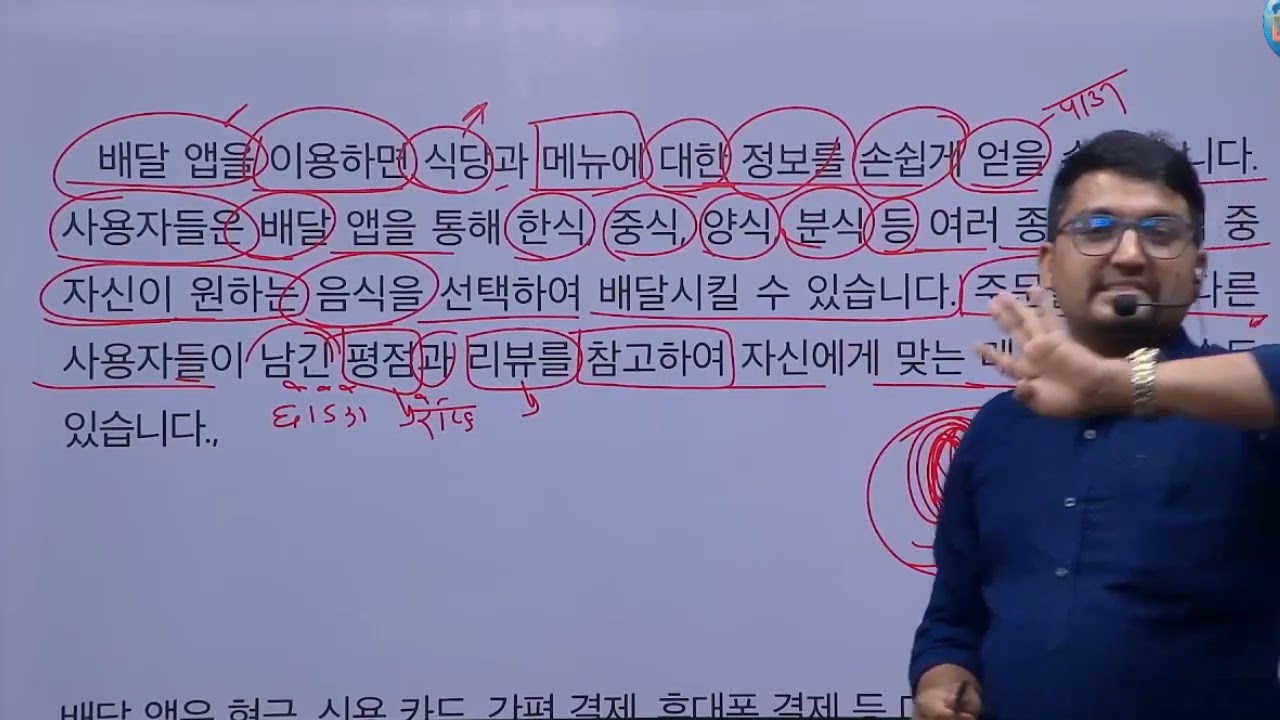 배달 앱을 이용하면 식당과 메뉴에 대한 정보를 손쉽게 얻을 니다.
사용자들은 배달 앱을 통해 한식, 중식, 양식, 분식 등 여러 중
자신이 원하는 음식을 선택하여 배달시킬 수 있습니다. 다른
사용자들이 남긴 평점과 리뷰를 참고하여 자신에게 맞는
있습니다.,
배달 앱은 현금, 신용 카드, 간편 결제, 휴대폰 결제 등